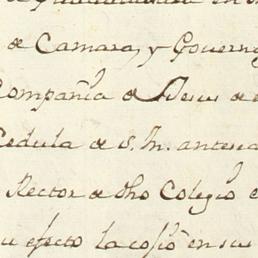 de Camara, y Govern
Compañia de Jesus de
Cedula de S. M. antese
Rector de dho Colegio e
su efecto la copió en sus